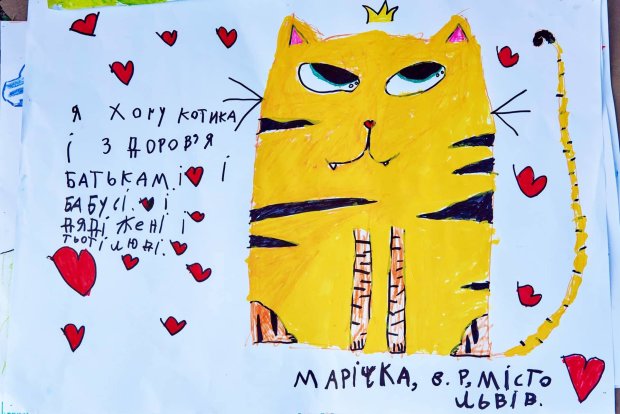 Я ХОЧУ КОТИКА
І ЗДОРОВ'Я
БАТЬКАМ І І
БАБУСІ. І
ДЯДІ ЖЕНІ І
ТЬОТІ ЛЮДІ.
МАРІЧКА, 8. Р, МІСТО
ЛЬВІВ.